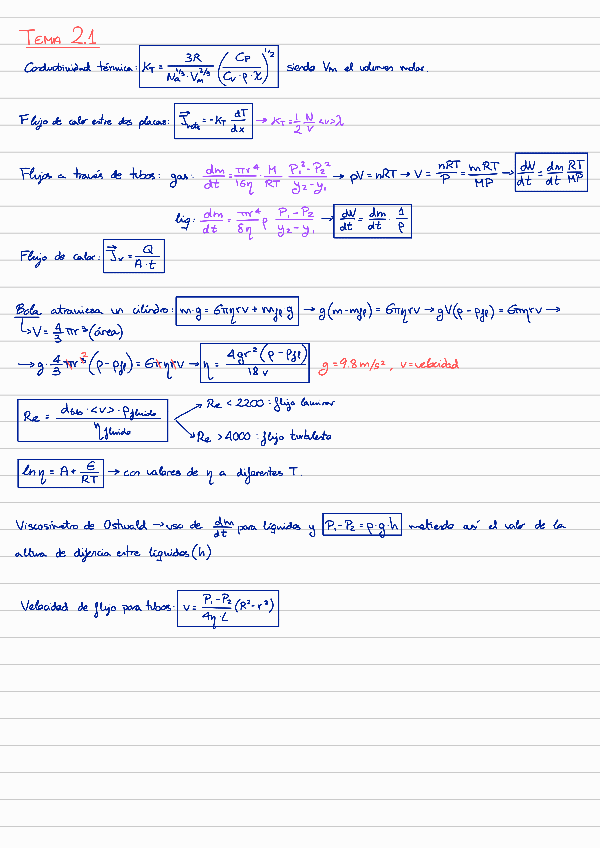 TEMA 2.1
Conductividad térmica: K_T = 3R / (Na^1/3 · Vm^2/3) (Cp / (Cv · ρ · χ))^1/2 siendo Vm el volumen molar.
Flujo de calor entre dos placas: J = -K_T dT/dx → K_T = 1/2 N/V <v> λ
Flujos a través de tubos: gas: dm/dt = πr⁴/16η · M/RT · (P₁² - P₂²)/(y₂ - y₁) → pV = nRT → V = nRT/P = mRT/MP → dV/dt = dm/dt RT/MP
liq: dm/dt = πr⁴/8η ρ (P₁ - P₂)/(y₂ - y₁) → dV/dt = dm/dt · 1/ρ
Flujo de calor: J_v = Q/(A · t)
Bola atraviesa un cilindro: m·g = 6πηrv + m_fl g → g(m - m_fl) = 6πηrv → gV(ρ - ρ_fl) = 6πηrv →
↳ V = 4/3 πr³ (área)
→ g · 4/3 πr³ (ρ - ρ_fl) = 6πηrv → η = 4gr²(ρ - ρ_fl) / 18v g = 9.8 m/s², v = velocidad
Re = d_tubo · <v> · ρ_fluido / η_fluido
Re < 2200: flujo laminar
Re > 4000: flujo turbulento
ln η = A + E/RT → con valores de η a diferentes T.
Viscosímetro de Ostwald → uso de dm/dt para líquidos y P₁ - P₂ = ρ·g·h metiendo así el valor de la
altura de difencia entre líquidos (h)
Velocidad de flujo para tubos: v = (P₁ - P₂)/(4η · L) (R² - r²)